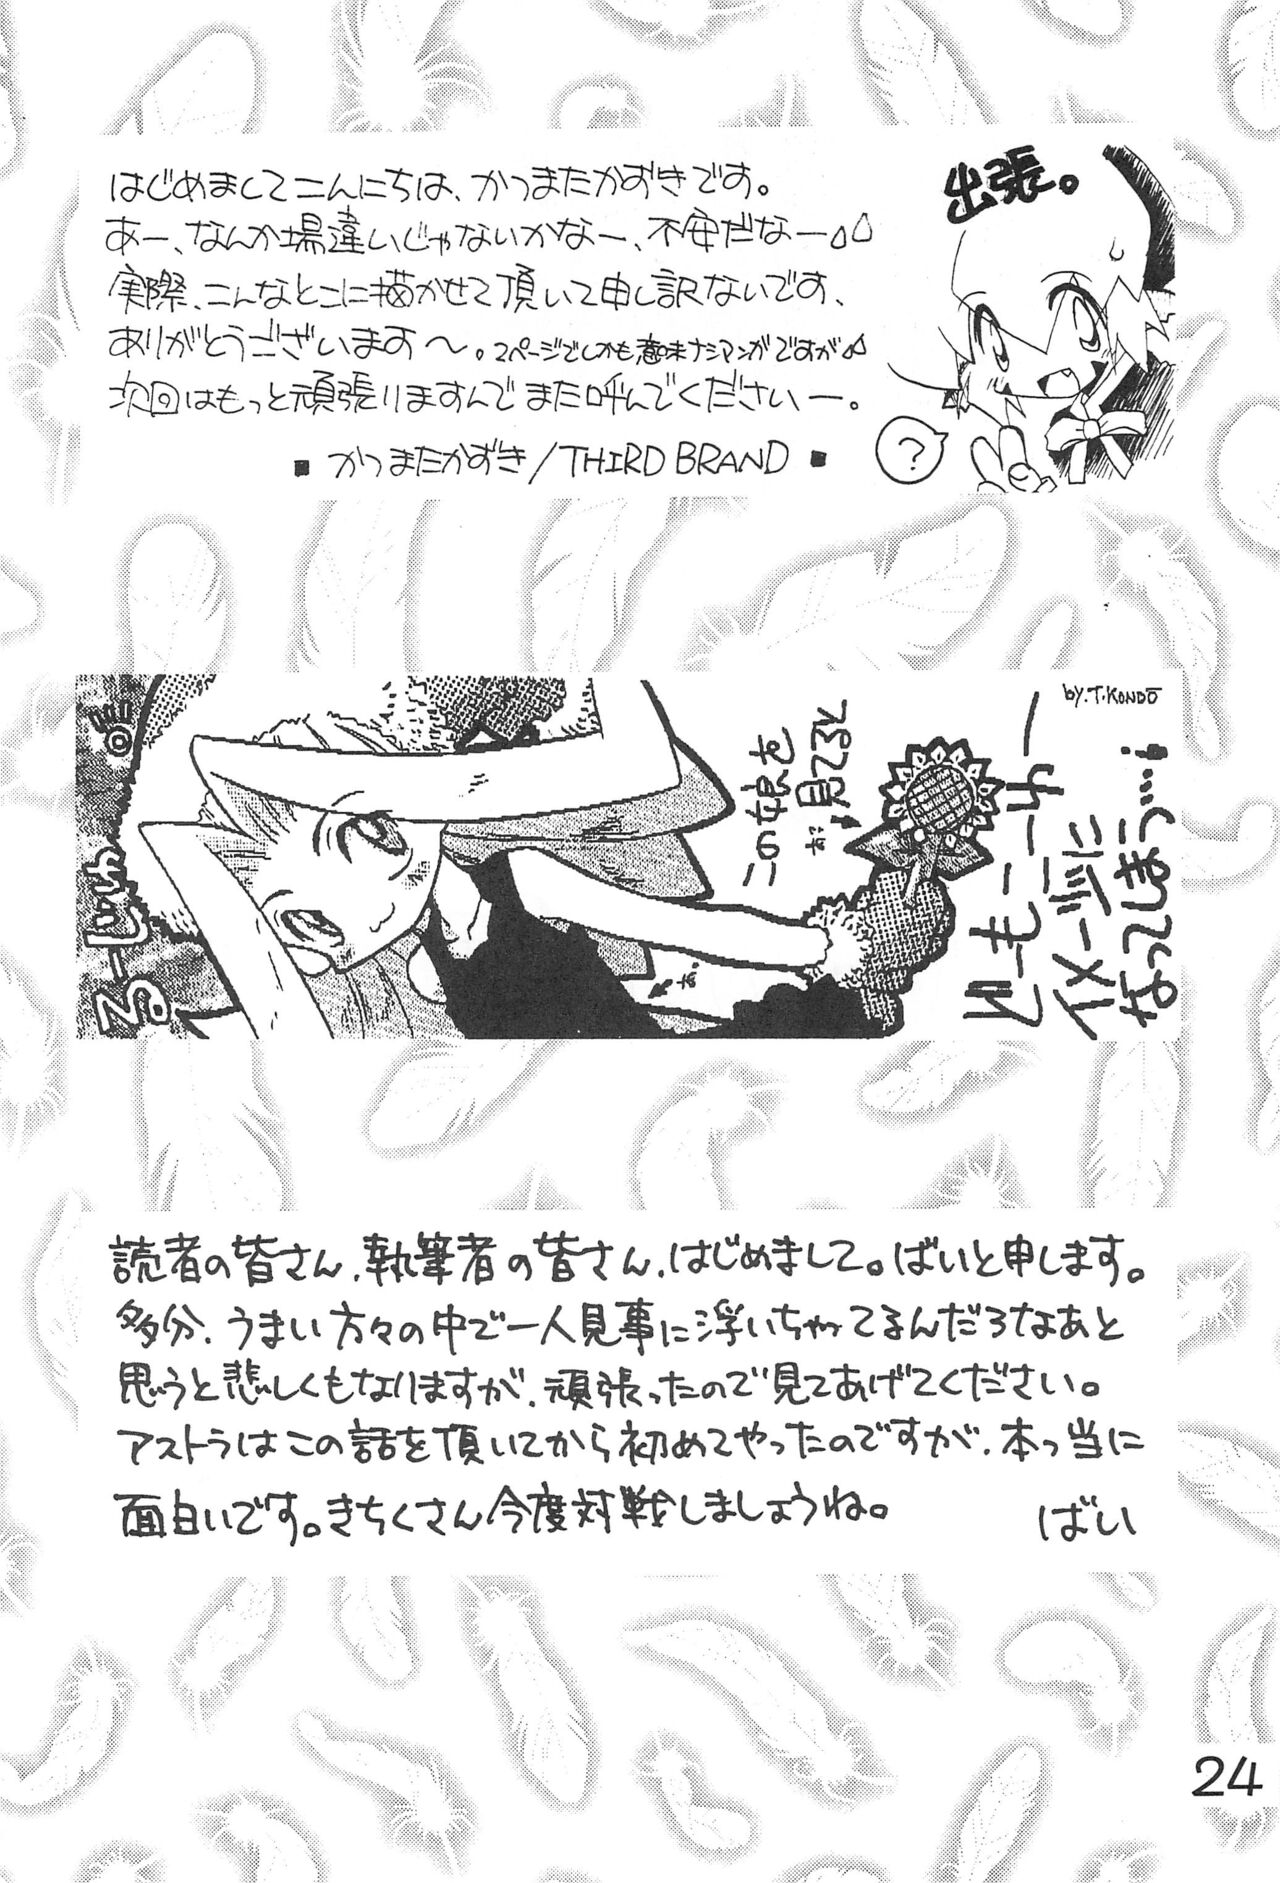 はじめましてこんにちは、かつまたかずきです。
あー、なんか場違いじゃないかなー、不安だなー
実際、こんなとこに描かせて頂いて申し訳ないです、
ありがとうございます〜。2ページでしかも意味ナシマンガですが
次回はもっと頑張りますんでまた呼んでくださいー。
■ かつまたかずき/THIRD BRAND ■
出張。
?
by.T.KONDO
この娘を
見てると
イメージに
なってしまう…!
読者の皆さん、執筆者の皆さん、はじめまして。ばいと申します。
多分、うまい方々の中で一人見事に浮いちゃってるんだろなあと
思うと悲しくもなりますが、頑張ったので見てあげてください。
アストラはこの話を頂いてから初めてやったのですが、本っ当に
面白いです。きちくさん今度対戦しましょうね。
ばい
24